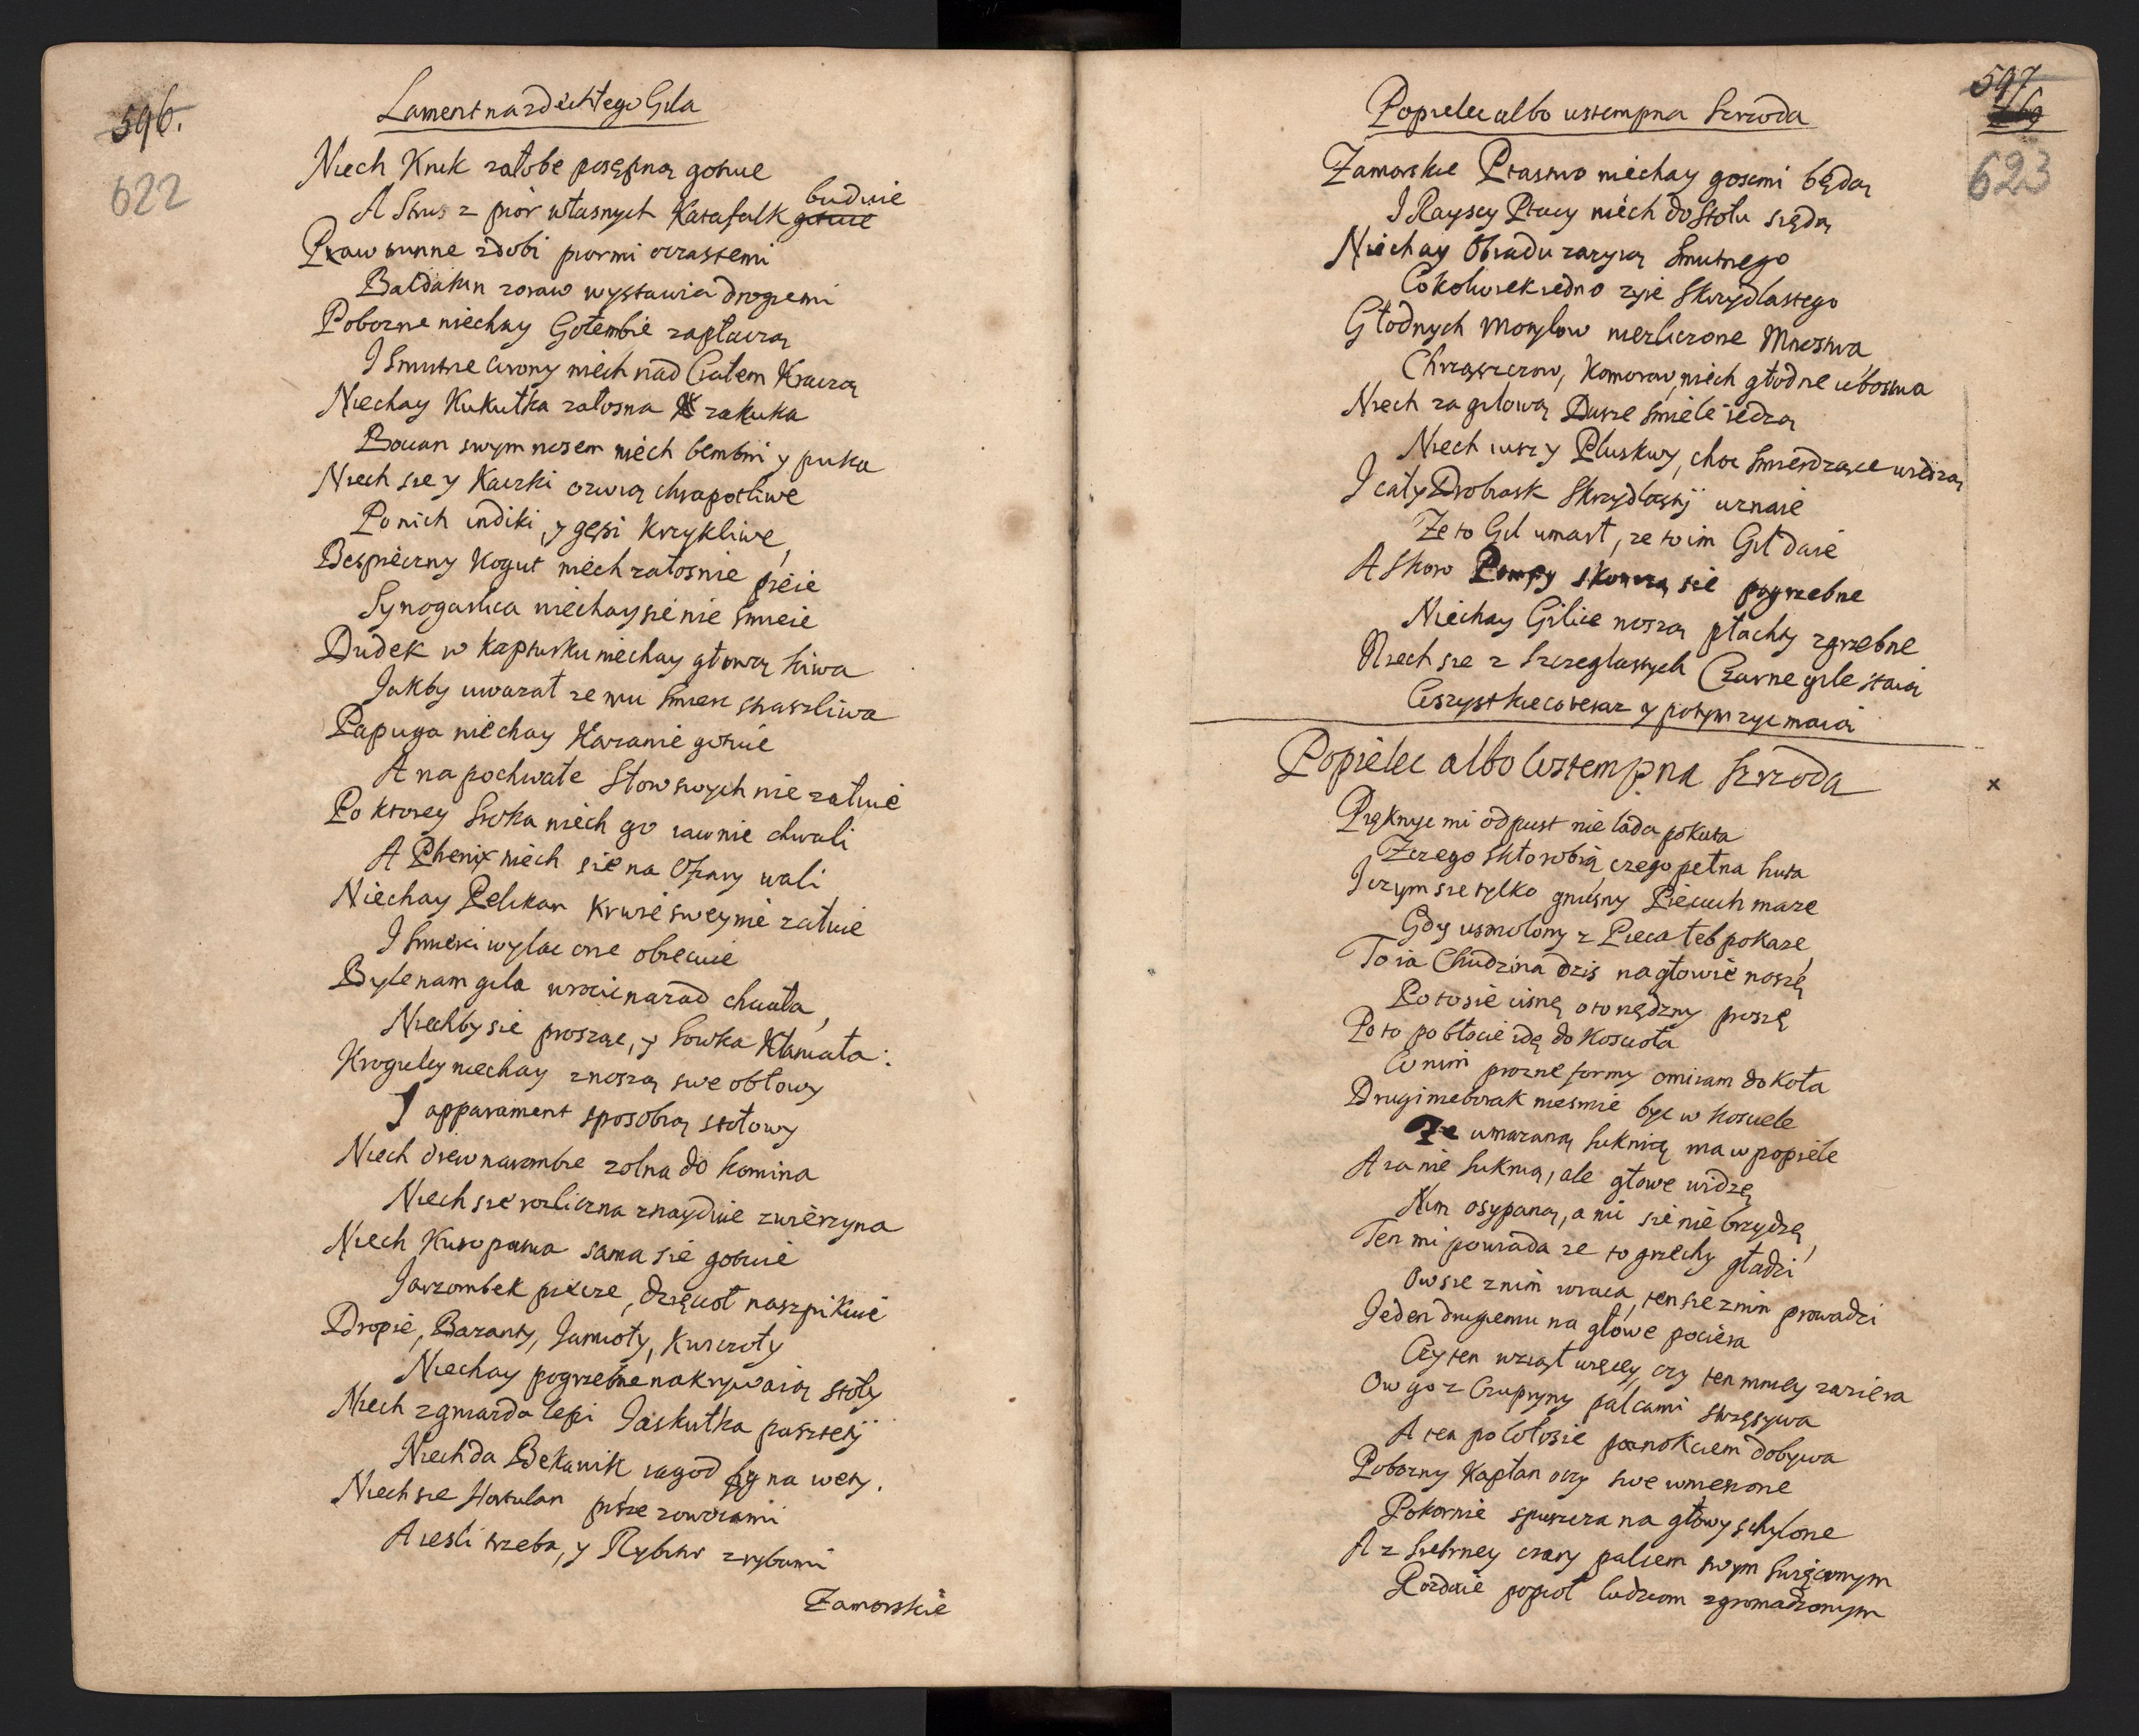 596.
622
Lament na zdechłego Gila
Niech Kruk załobe posępną gotuie
buduie
A Strus z piór własnych Katafalk gotuie
Paw trunne zdobi piormi oczastemi
Baldakin zoraw wystawia drogiemi
Pobozne niechay Gołembie zapłaczą
I Smutne Wrony niech nad Ciałem Kraczą
Niechay Kukułka załosna zakuka
Bocian swym nosem niech bembni y puka
Niech sie y Kaczki ozwią chrapotliwe
Po nich indiki, y gęsi krzykliwe,
Bespieczny Kogut niech załosnie pieie
Synogarlica niechay sie nie smieie
Dudek w kapturku niechay głową kiwa
Jakby uwazał ze mu smierc straszliwa
Papuga niechay Kazanie gotuie
A na pochwałe Słow swych nie załuie
Po ktorey Sroka niech go iawnie chwali
A Phenix niech sie na Ofiary wali
Niechay Pelikan krwie swey nie załuie
I Smierci wylac one obiecuie
Byle nam gila wrocic nazad chciała,
Niechby sie prosząc, y Sowka kłaniała:
Krogulcy niechay znoszą swe obłowy
I apparament sposobią stołowy
Niech drew narombie zołna do komina
Niech sie rozliczna znayduie zwierzyna
Niech Kuropatwa sama sie gotuie
Jarzombek piecze, dzięcioł naszpikuie
Dropie, Bazanty, Jamioły, Kwiczoły
Niechay pogrzebne nakrywaią stoły
Niech zgniarda lepi Jaskułka pasztety
Niech da Bekawik iagod fig na wety.
Niech sie Hortulan pisze zowocami
A iesli trzeba, y Rybitw z rybami
Zamorskie
597
623
Popielec albo wstempna Szrzoda
Zamorskie Ptastwo niechay gosćmi będą
I Rayscy Ptacy niech do Stołu siędą
Niechay Obiadu zazyią Smutnego
Cokolwiek iedno zyie Skrzydlastego
Głodnych Motylow niezliczone Mnostwa
Chrząszczow, Komorow, niech głodne ubostwa
Niech za gilową Dusze smiele iedzą
Niech wszy Pluskwy, choc smierdzące wiedzą
I cały Drobiask Skrzydlasty uznaie
Ze to Gil umarł, ze to im Gil daie
A Skoro Pompy skonczą sie pogrzebne
Niechay Gilice noszą płachty zgrzebne
Niech sie z Szczeglastych Czarne gile staią
Wszystkie co teraz y potym zyc maią
Popielec albo Wstempna Szrzoda
x
Pięknyc mi odpust nie lada pokuta
Z czego Szkło robią, czego pełna huta
I czym sie tylko gnusny Piecuch maze
Gdy usmolony z Pieca łeb pokaze,
To ia Chudzina dzis na głowie noszę,
Po to sie cisnę o to nędzny proszę
Po to po błocie idę do Koscioła
W nim prozne formy omiiam do koła
Drugi nieborak niesmie byc w kosciele
Ze umazaną suknią ma w popiele
A ia nie suknią, ale głowe widzę
Nim osypaną, a mi sie nie brzydzę,
Ten mi powiada ze to grzechy gładzi
Ow sie z nim wraca, ten sie z nim prowadzi
Jeden drugiemu na głowe poziera
Czy ten wziął więcey, czy ten mniey zaziera
Ow go z Czupryny palcami strzęsywa
A ten po włosie paznokciem dobywa
Pobozny Kapłan oczy swe wniesione
Pokornie spuszcza na głowy schylone
A z Srebrney czary palcem swym święconym
Rozdaie popioł ludziom zgromadzonym